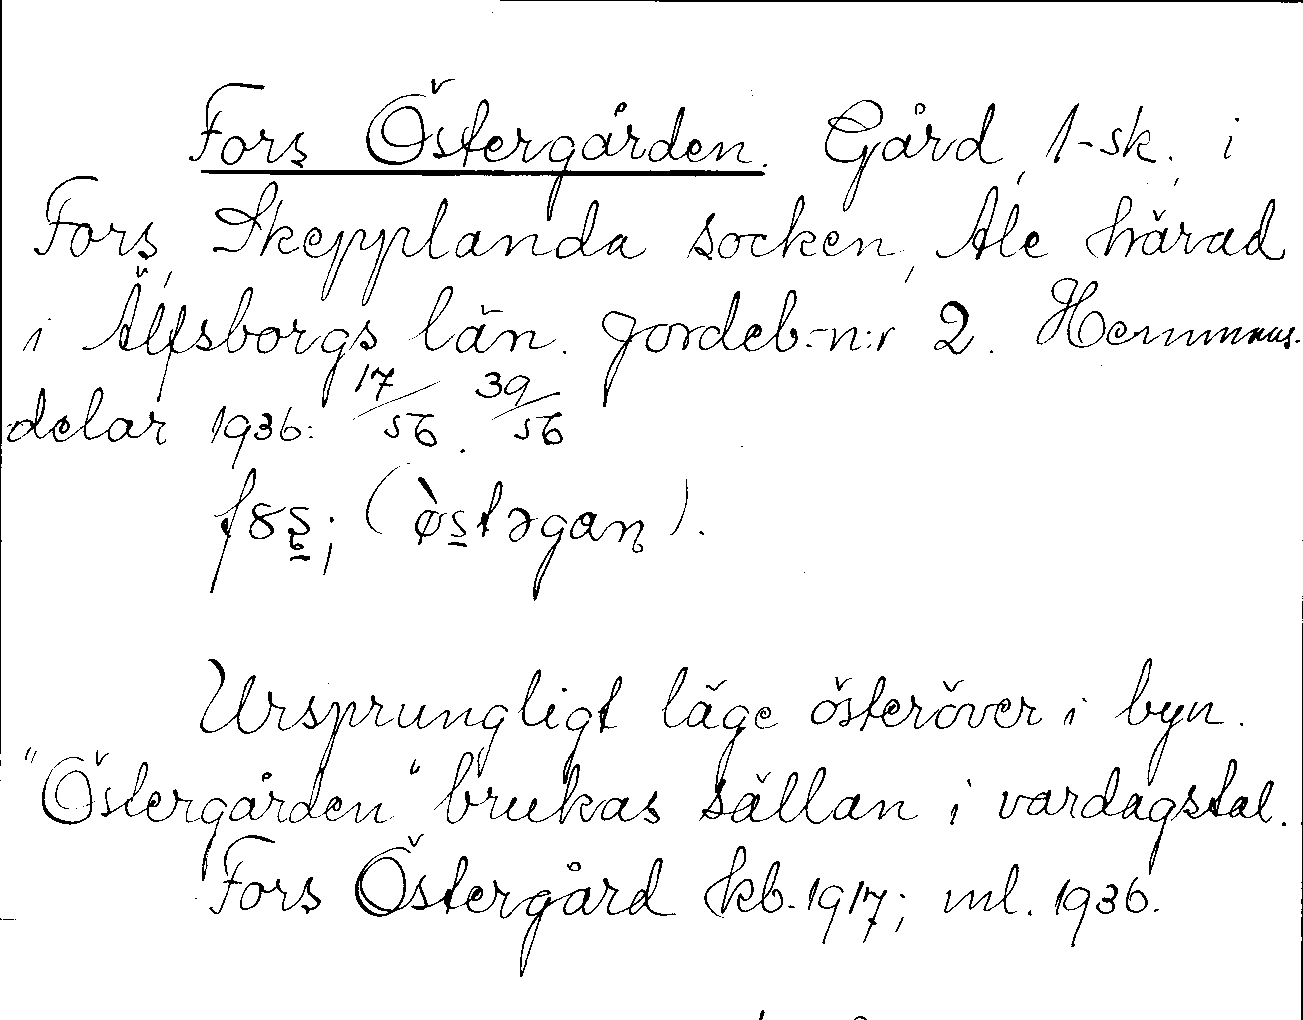 Fors Östergården. Gård, 1-sk., i
Fors, Skepplanda socken, Ale härad
i Älfsborgs län. Jordeb.-n:r 2. Hemmans-
delar 1936: 17/56. 39/56
f8s̲; (ò̀s̲təgaɳ).
Ursprungligt läge österöver i byn.
"Östergården" brukas sällan i vardagstal.
Fors Östergård kb. 1917; ml. 1936.